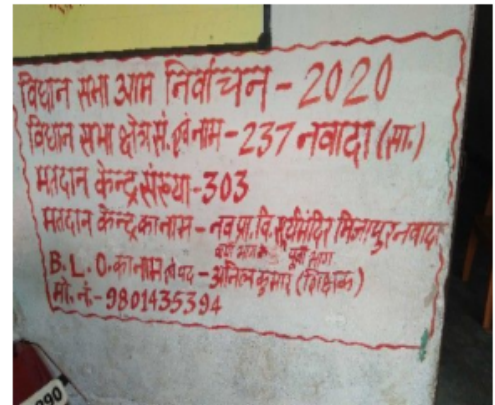 विधान सभा आम निर्वाचन - 2020
विधान सभा क्षेत्र सं. एवं नाम - 237 नवादा (सा.)
मतदान केन्द्र संख्या - 303
मतदान केन्द्र का नाम - नव प्रा. वि. सूर्यमंदिर मिर्जापुर नवादा
भाग पूर्वी भाग
B. L. O. का नाम एवं पद - अनिल कुमार (शिक्षक)
मो. नं. - 9801435394
390